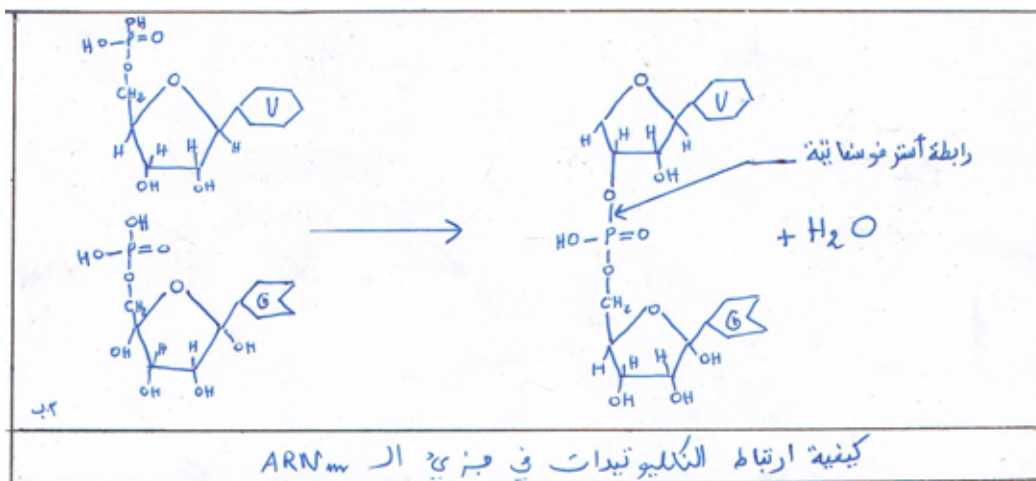 PH
HO-P=O
O
CH₂
O
U
H H H H
OH OH
OH
HO-P=O
O
CH₂
O
G
OH H H OH
OH OH
O
U
H H H H
OH
O
رابطة أستر فوسفاتية
HO-P=O
+ H₂O
O
CH₂
O
G
H H H OH
OH OH
كيفية ارتباط النكليوتيدات في جزيء الـ ARNm